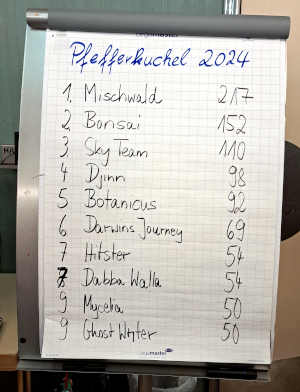 Legamaster
Pfefferkuchel 2024
1. Mischwald 217
2. Bonsai 152
3. Sky Team 110
4 Djinn 98
5 Botanicus 92
6 Darwins Journey 69
7 Hitster 54
7 Dabba Walla 54
9 Mycelia 50
9 Ghost Writer 50
Legamaster